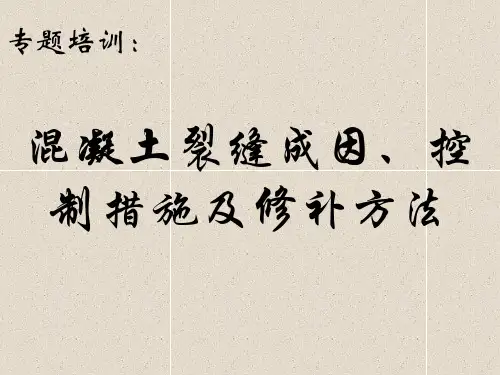 专题培训：
混凝土裂缝成因、控
制措施及修补方法